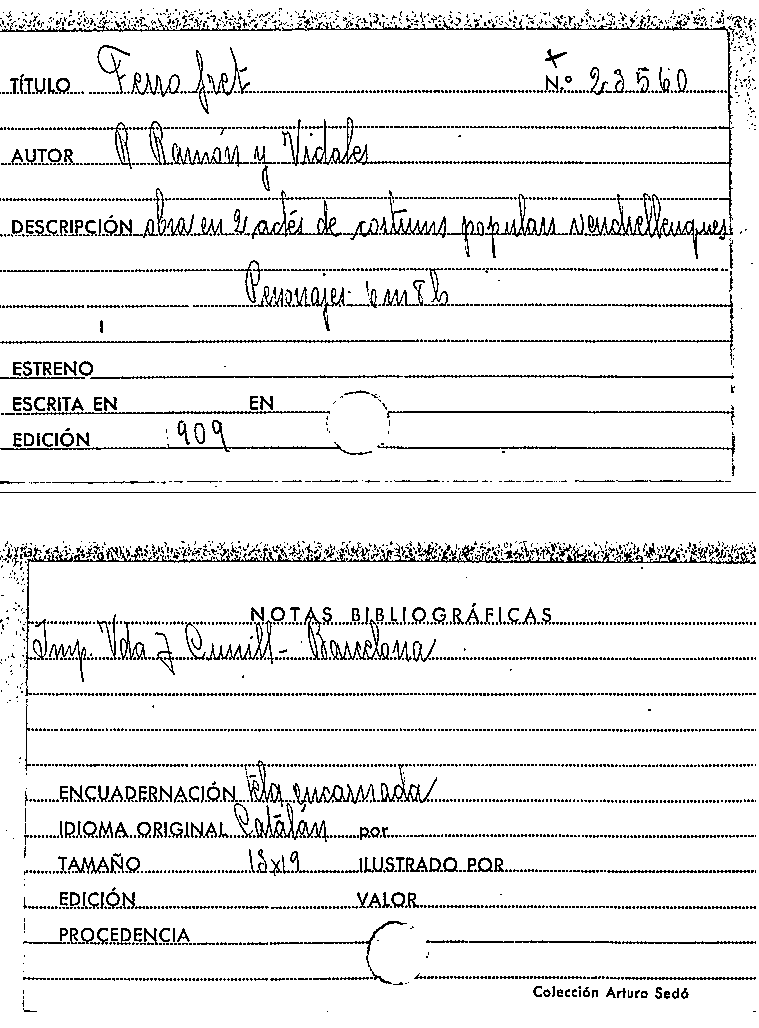 TÍTULO Ferro fret N.º 23560
AUTOR R Ramón y Vidales
DESCRIPCIÓN obra en 2 actes de costums populars vendrellenques
Personajes 6 m 8 h
ESTRENO
ESCRITA EN EN
EDICIÓN 1909
NOTAS BIBLIOGRÁFICAS
Imp. Vda J Cunill - Barcelona
ENCUADERNACIÓN Tela encarnada
IDIOMA ORIGINAL Catalán por
TAMAÑO 13x19 ILUSTRADO POR
EDICIÓN VALOR
PROCEDENCIA
Colección Arturo Sedó